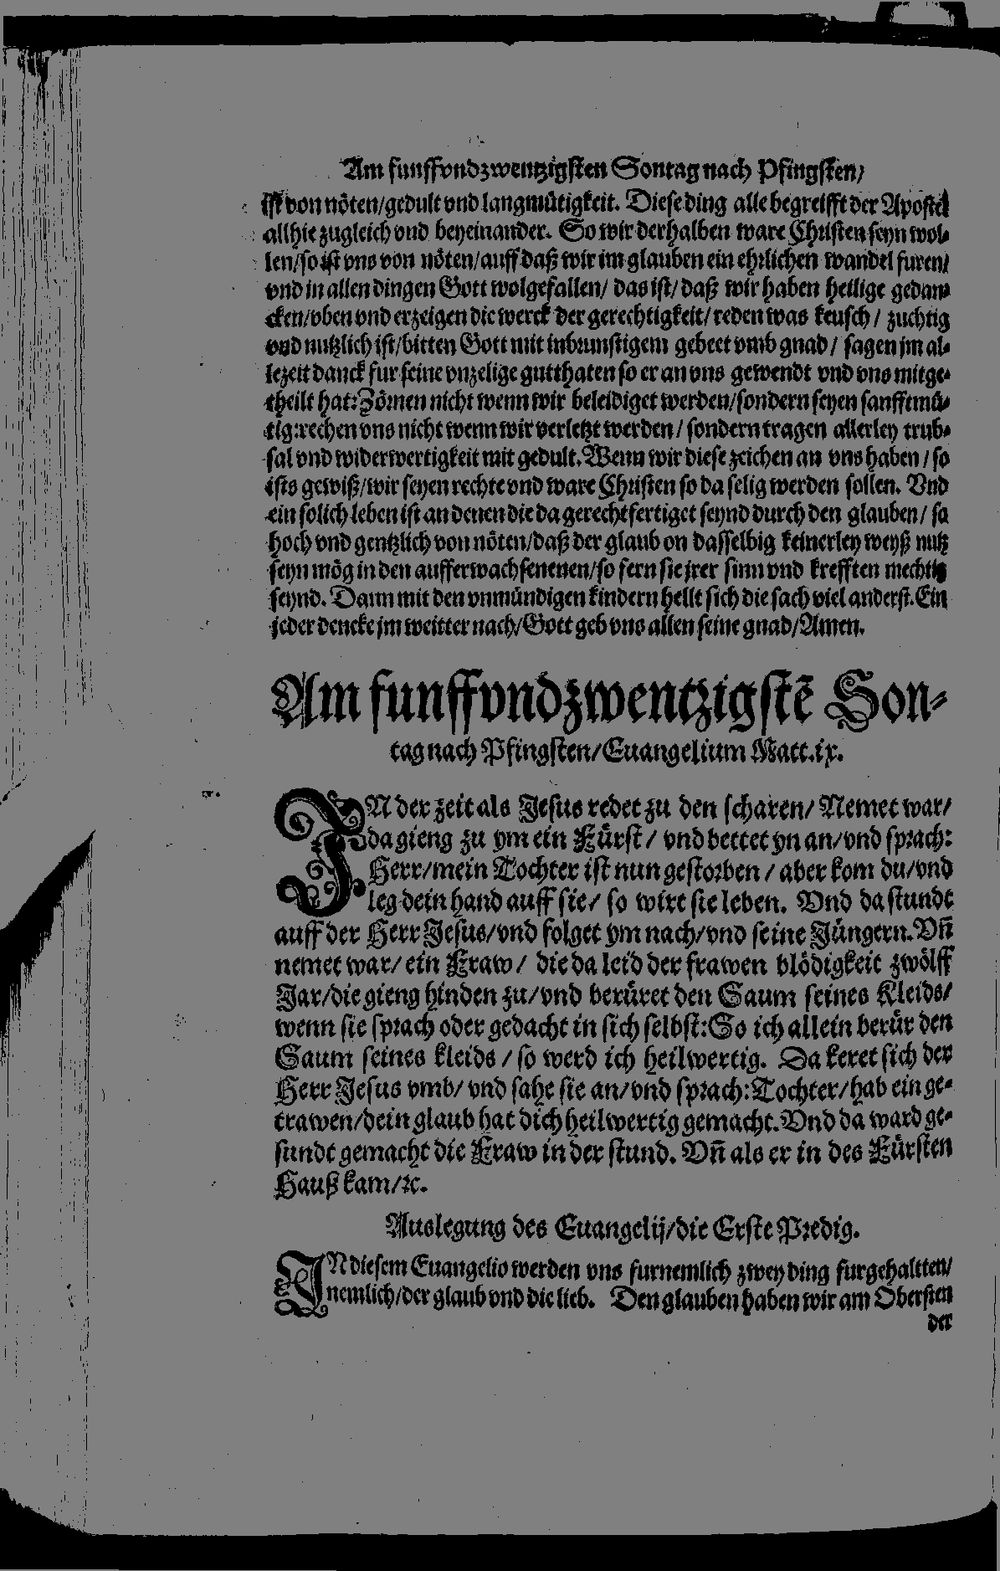 Am funffvndzwentzigsten Sontag nach Pfingsten/
ist von nöten/gedult vnd langmütigkeit. Diese ding alle begreifft der Apostel
allhie zugleich vnd beyeinander. So wir derhalben ware Christen seyn wol-
len/so ist vns von nöten/auff daß wir im glauben ein ehrlichen wandel furen/
vnd in allen dingen Gott wolgefallen/ das ist/ daß wir haben heilige gedan-
cken/vben vnd erzeigen die werck der gerechtigkeit/ reden was keusch/ zuchtig
vnd nutzlich ist/bitten Gott mit inbrunstigem gebeet vmb gnad/ sagen jm al-
lezeit danck fur seine vnzelige gutthaten so er an vns gewendt vnd vns mitge-
theilt hat: Zörnen nicht wenn wir beleidiget werden/sondern seyen sanfftmü-
tig:rechen vns nicht wenn wir verletzt werden/ sondern tragen allerley trub-
sal vnd widerwertigkeit mit gedult. Wenn wir diese zeichen an vns haben/ so
ists gewiß/wir seyen rechte vnd ware Christen so da selig werden sollen. Vnd
ein solich leben ist an denen die da gerechtfertiget seynd durch den glauben/ so
hoch vnd gentzlich von nöten/daß der glaub on dasselbig keinerley weyß nutz
seyn mög in den aufferwachsenenen/so fern sie jrer sinn vnd krefften mechtig
seynd. Dann mit den vnmündigen kindern hellt sich die sach viel anderst. Ein
jeder dencke jm weitter nach/Gott geb vns allen seine gnad/Amen.
Am funffvndzwentzigstē Son-
tag nach Pfingsten/Euangelium Matt.ix.
IN der zeit als Jesus redet zu den scharen/ Nemet war/
da gieng zu ym ein Fürst/ vnd bettet yn an/vnd sprach:
Herr/mein Tochter ist nun gestorben/ aber kom du/vnd
leg dein hand auff sie/ so wirt sie leben. Vnd da stundt
auff der Herr Jesus/vnd folget ym nach/vnd seine Jüngern. Vñ
nemet war/ ein Fraw/ die da leid der frawen blödigkeit zwölff
Jar/die gieng hinden zu/vnd berüret den Saum seines Kleids/
wenn sie sprach oder gedacht in sich selbst: So ich allein berür den
Saum seines kleids/ so werd ich heilwertig. Da keret sich der
Herr Jesus vmb/ vnd sahe sie an/vnd sprach: Tochter/hab ein ge-
trawen/dein glaub hat dich heilwertig gemacht. Vnd da ward ge-
sundt gemacht die Fraw in der stund. Vñ als er in des Fürsten
Hauß kam/ꝛc.
Auslegung des Euangelij/die Erste Predig.
IN diesem Euangelio werden vns furnemlich zwey ding furgehaltten/
nemlich/der glaub vnd die lieb. Den glauben haben wir am Obersten
der